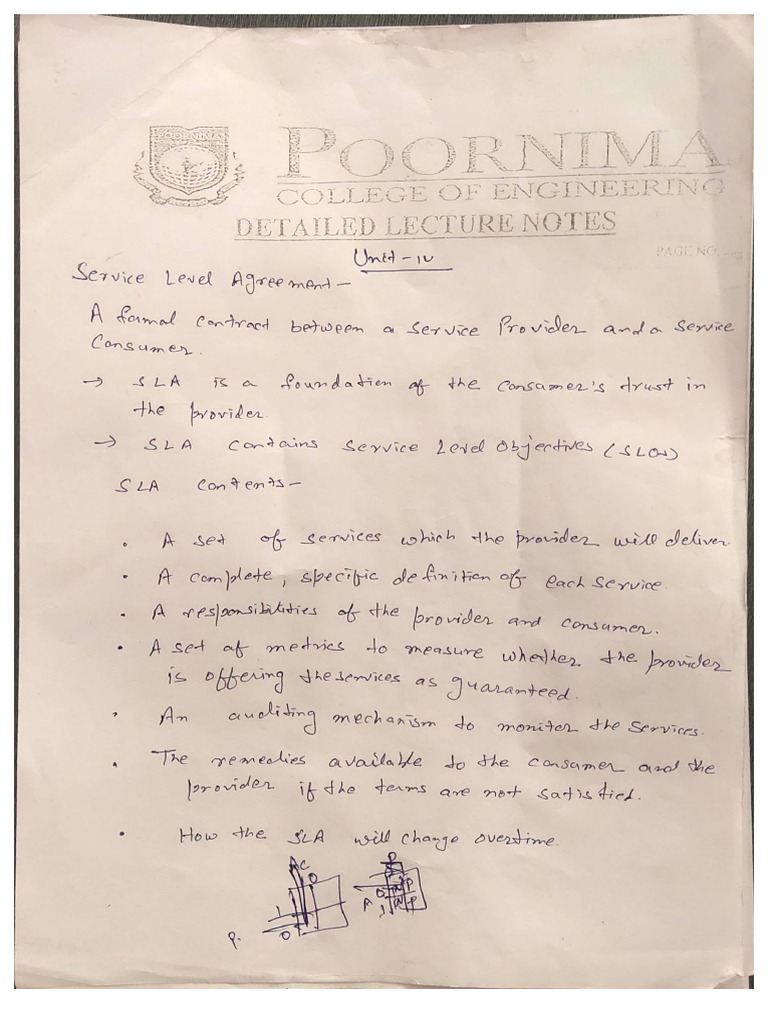 POORNIMA
COLLEGE OF ENGINEERING
DETAILED LECTURE NOTES
PAGE NO. ....
Unit - IV
Service Level Agreement -
A formal contract between a service Provider and a service
Consumer.
→ SLA is a foundation of the consumer's trust in
the provider.
→ SLA contains service Level Objectives (SLOs)
SLA contents -
• A set of services which the provider will deliver.
• A complete, specific definition of each service.
• A responsibilities of the provider and consumer.
• A set of metrics to measure whether the provider
is offering the services as guaranteed.
• An auditing mechanism to monitor the services.
• The remedies available to the consumer and the
provider if the terms are not satisfied.
• How the SLA will change overtime.